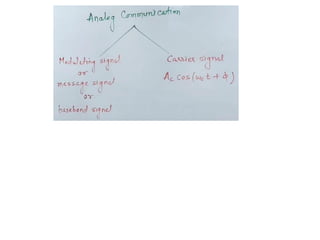 Analog Communication
Modulating signal
or
message signal
or
baseband signal
Carrier signal
Ac cos(ωc t + ϕ)